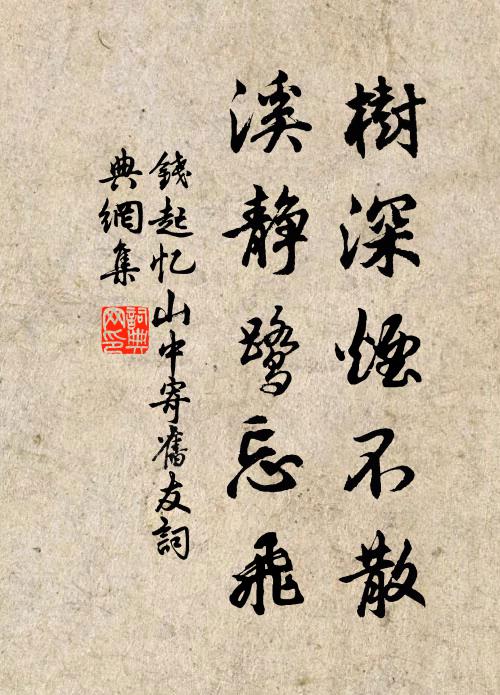 樹深煙不散
溪靜鷺忘飛
錢起忆山中寄舊友詞
典網集
詞典
网印